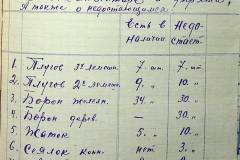 А также о недостающимся
есть в наличии Недостает.
1. Плугов 3х лемешн. 7. шт. 7. шт.
2. Плугов 2х лемешн. 9. „ 10. „
3. Борон железн. 34. „ 30. „
4. Борон дерев. — 30. „
5. Жаток 5. „ 10. „
6. Сеялок конн. нет 3. „